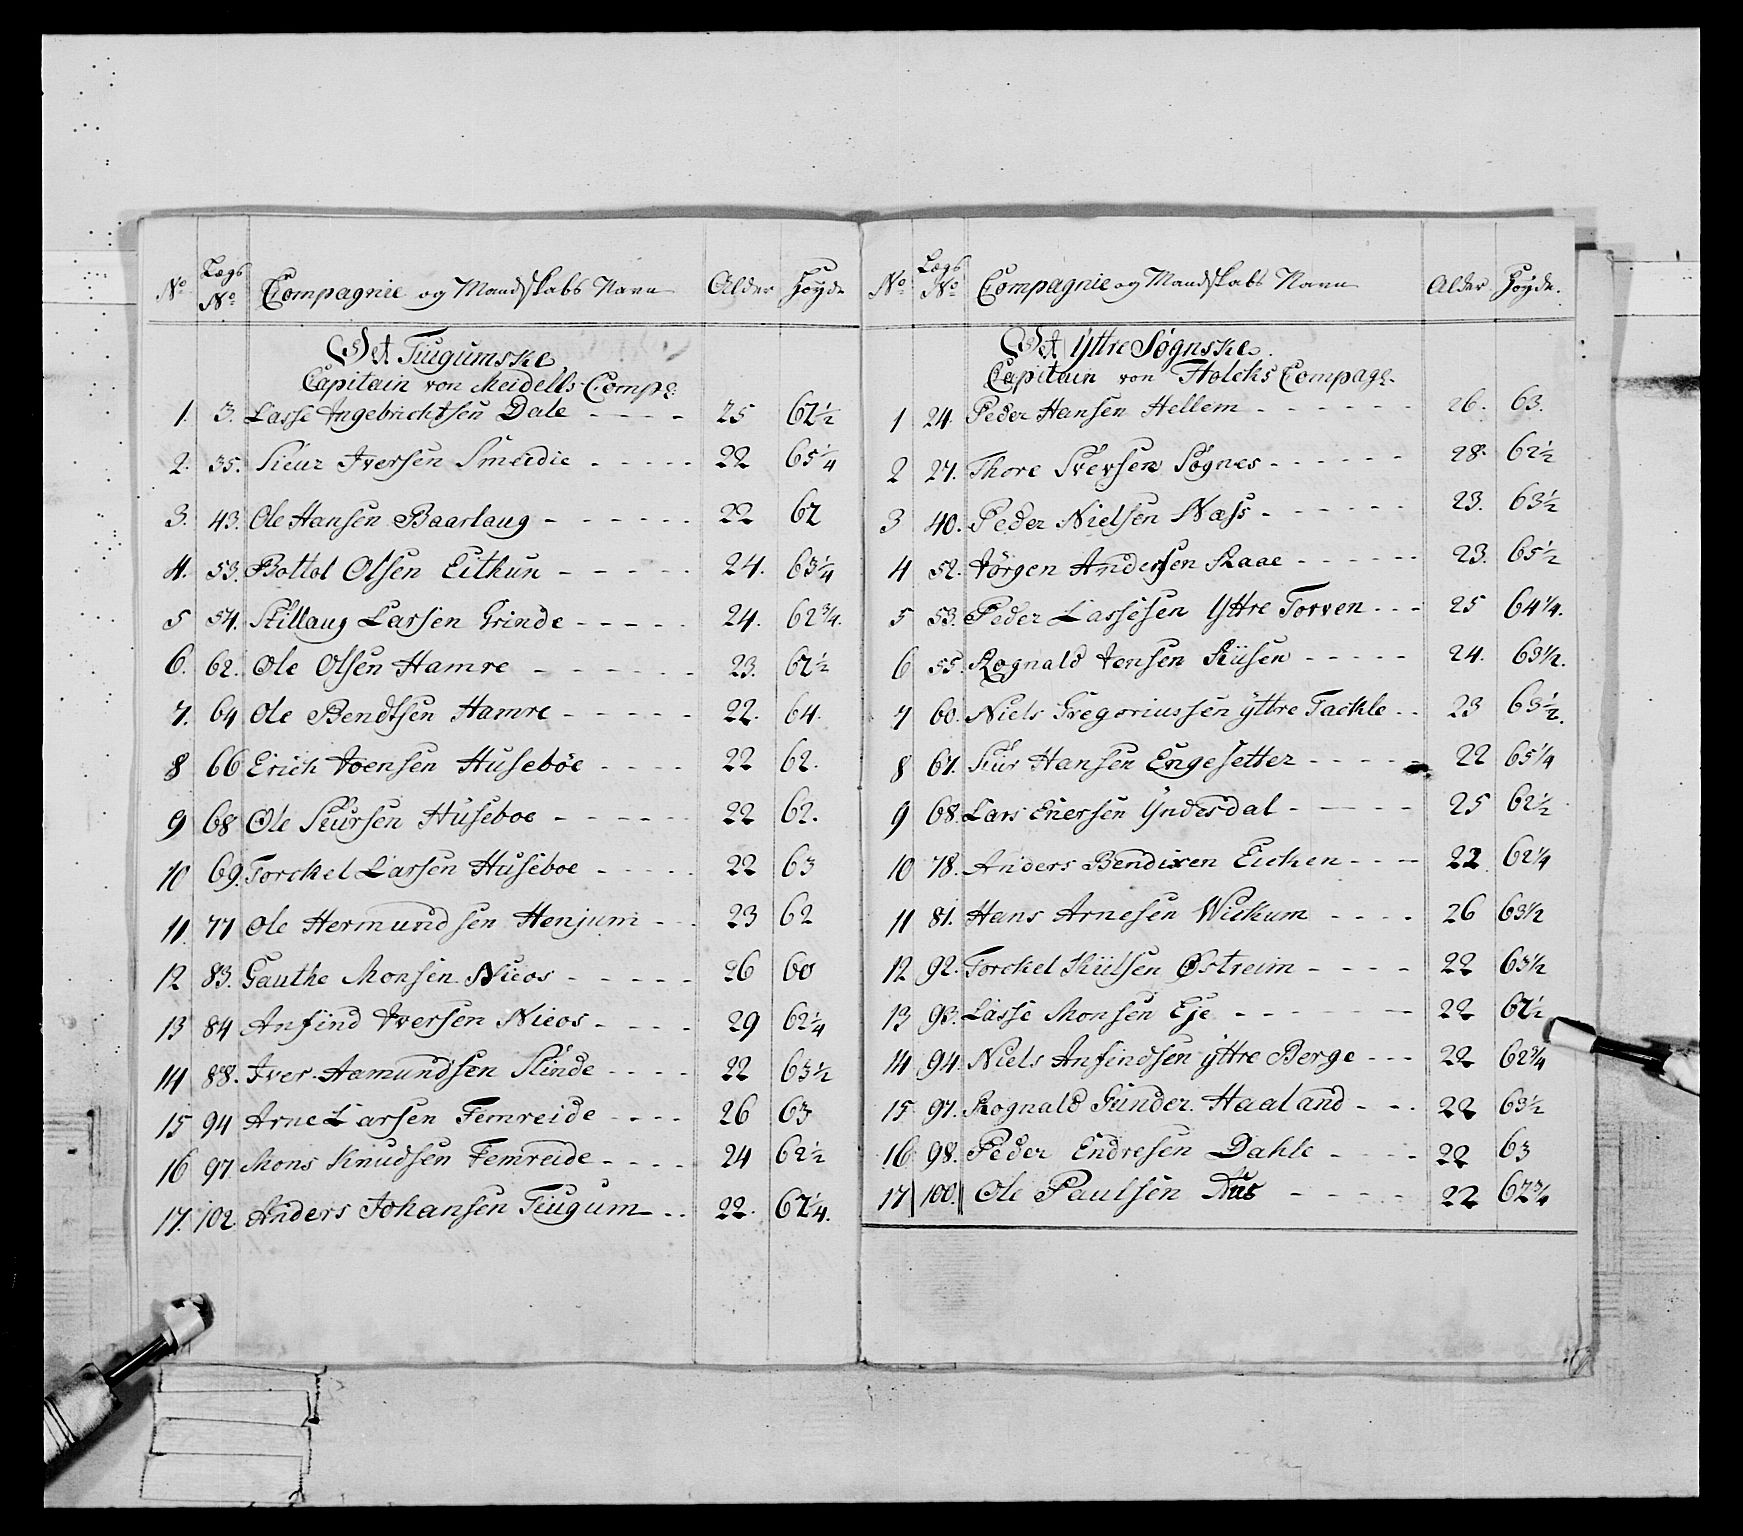 No Lægs No Compagnie og Mandskabs Navn Alder Høyde
Det Tiugumske
Capitain von Meidells Compe:
1. 3. Lasse Ingebrichtsen Dale 25 62½
2. 35. Sieur Iversen Smeedie 22 65¼
3. 43. Ole Hansen Baarlaug 22 62
4. 53. Bottol Olsen Eithun 24. 63¼
5 54. Stillaug Larsen Grinde 24. 62¾.
6. 62. Ole Olsen Hamre 23. 62½
7. 64 Ole Bendtsen Hamre 22. 64.
8 66 Erich Joensen Huseböe 22 62.
9 68 Ole Siursen Huseboe 22 62.
10 69. Torckel Larsen Huseboe 22 63
11. 77 Ole Hermundsen Henjum 23 62
12 83. Gauthe Monsen Nicos 26 60
13 84 Anfind Iversen Nicos 29 62¼
14 88. Iver Aamundsen Slinde 22 63½
15 94 Arne Larsen Femreide 26 63
16 97. Mons Knudsen Femreide 24 62½
17. 102 Anders Johansen Tiugum 22. 62¼.
No Lægs No Compagnie og Mandskabs Navn Alder Høyde.
Det Yttre Søgnske.
Capitain von Holcks Compag:
1 24. Peder Hansen Hellem 26. 63.
2 27. Thore Sversen Søgnes 28. 62½
3 40. Peder Nielsen Næss 23. 63½
4 52. Jørgen Andersen Raae 23. 65½
5 53. Peder Lassesen Yttre Torven 25 64¼.
6 55. Rognald Jensen 24. 63½.
7 60. Niels Gregoriussen yttre Tackle 23 63½.
8 67. Siur Hansen Engesetter 22 65¼
9 68. Lars Enersen Yndesdal 25 62½
10 78. Anders Bendixen Eichen 22 62¼
11 81. Hans Arnesen Wickum 26 63½
12 92. Torckel Østreim 22 63½
13 93. Lasse Monsen Eje 22 62½
14 94. Niels Anfindsen yttre Berge 22 62¾
15 97. Rognald Gunder. Haaland 22 63½
16 98. Peder Endresen Dahle 22 63
17 100. Ole Paulsen 22 62¾